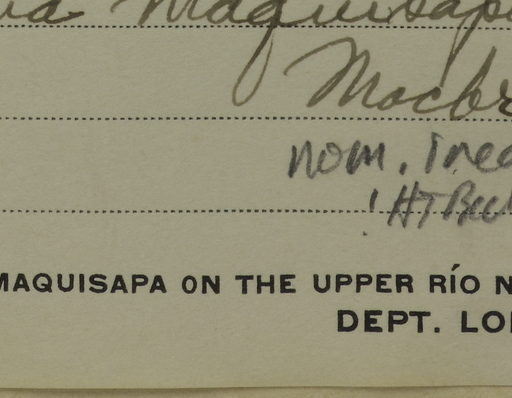 Maquisap
Macbr
nom. ined
! HT Beck
MAQUISAPA ON THE UPPER RÍO N
DEPT. LO